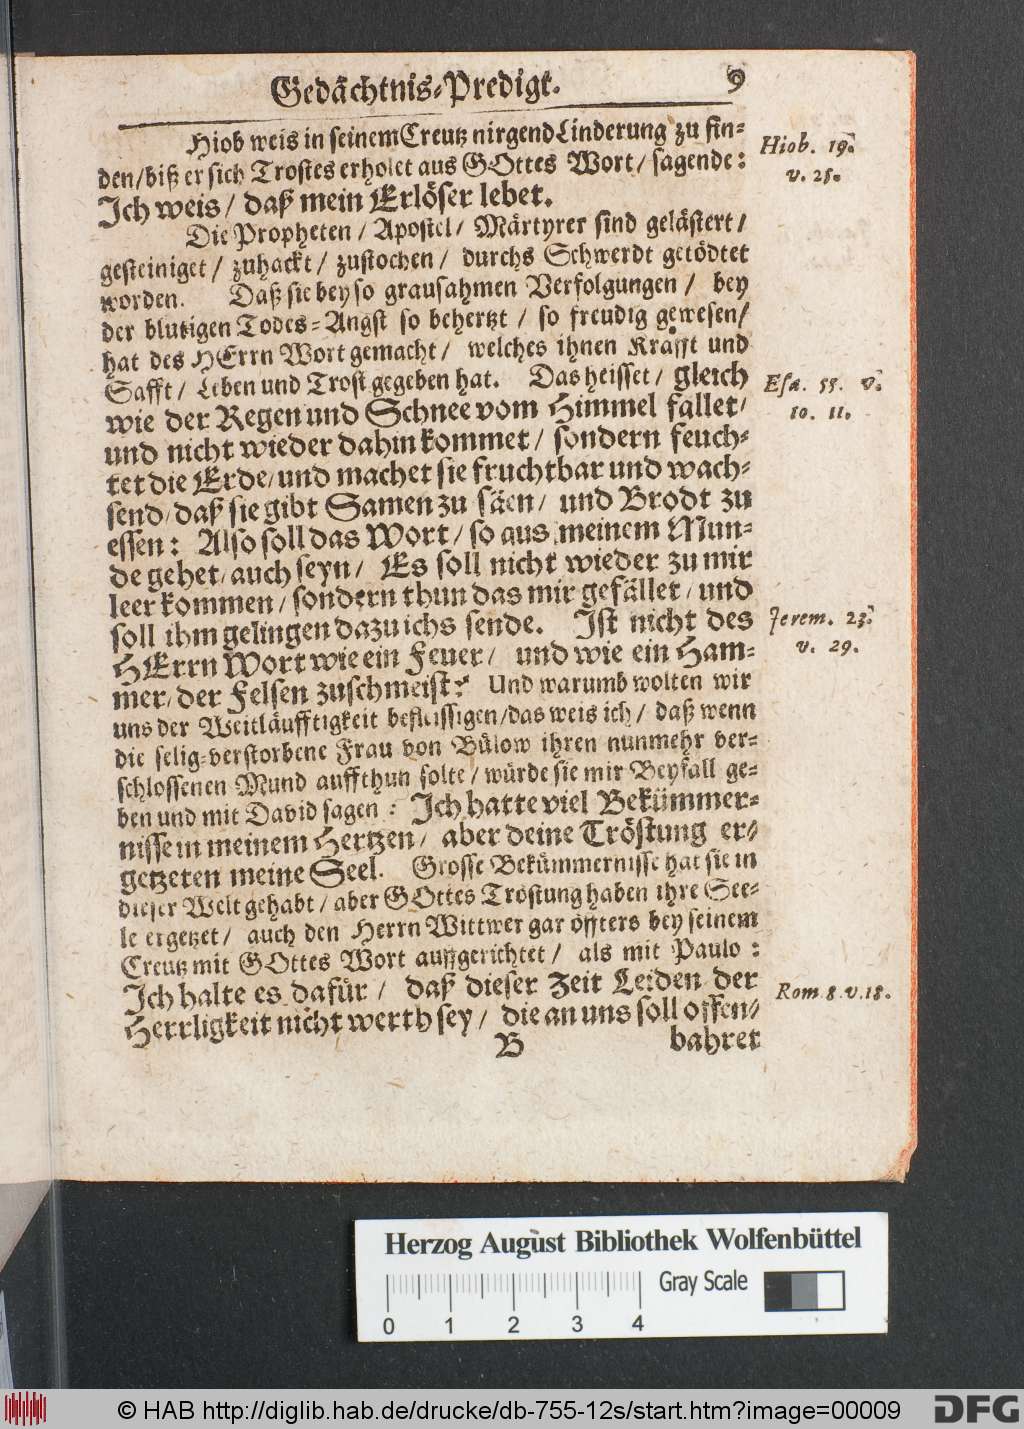 Gedächtnis-Predigt. 9
Hiob weis in seinem Creutz nirgend Linderung zu fin-
den/biß er sich Trostes erholet aus GOttes Wort/ sagende:
Ich weis/ daß mein Erlöser lebet.
Hiob. 19.
v. 25.
Die Propheten/ Apostel/ Märtyrer sind gelästert/
gesteiniget/ zuhackt/ zustochen/ durchs Schwerdt getödtet
worden. Daß sie bey so grausahmen Verfolgungen/ bey
der blutigen Todes-Angst so behertzt/ so freudig gewesen/
hat des HErrn Wort gemacht/ welches ihnen Krafft und
Safft/ Leben und Trost gegeben hat. Das heisset/ gleich
Esa. 55. v.
10. 11.
wie der Regen und Schnee vom Himmel fallet/
und nicht wieder dahin kommet/ sondern feuch-
tet die Erde/ und machet sie fruchtbar und wach-
send/ daß sie gibt Samen zu säen/ und Brodt zu
essen: Also soll das Wort/ so aus meinem Mun-
de gehet/ auch seyn/ Es soll nicht wieder zu mir
leer kommen/ sondern thun das mir gefället/ und
soll ihm gelingen dazu ichs sende. Ist nicht des
Jerem. 23.
v. 29.
HErrn Wort wie ein Feuer/ und wie ein Ham-
mer/ der Felsen zuschmeist? Und warumb wolten wir
uns der Weitläufftigkeit befleissigen/das weis ich/ daß wenn
die selig-verstorbene Frau von Bülow ihren nunmehr ver-
schlossenen Mund auffthun solte/ würde sie mir Beyfall ge-
ben und mit David sagen: Ich hatte viel Bekümmer-
nisse in meinem Hertzen/ aber deine Tröstung er-
getzeten meine Seel. Grosse Bekümmernisse hat sie in
dieser Welt gehabt/ aber GOttes Tröstung haben ihre See-
le ergetzet/ auch den Herrn Wittwer gar öffters bey seinem
Creutz mit GOttes Wort auffgerichtet/ als mit Paulo:
Ich halte es dafür/ daß dieser Zeit Leiden der
Rom 8. v. 18.
Herrligkeit nicht werth sey/ die an uns soll offen-
B bahret
Herzog August Bibliothek Wolfenbüttel
Gray Scale
0 1 2 3 4
© HAB http://diglib.hab.de/drucke/db-755-12s/start.htm?image=00009
DFG